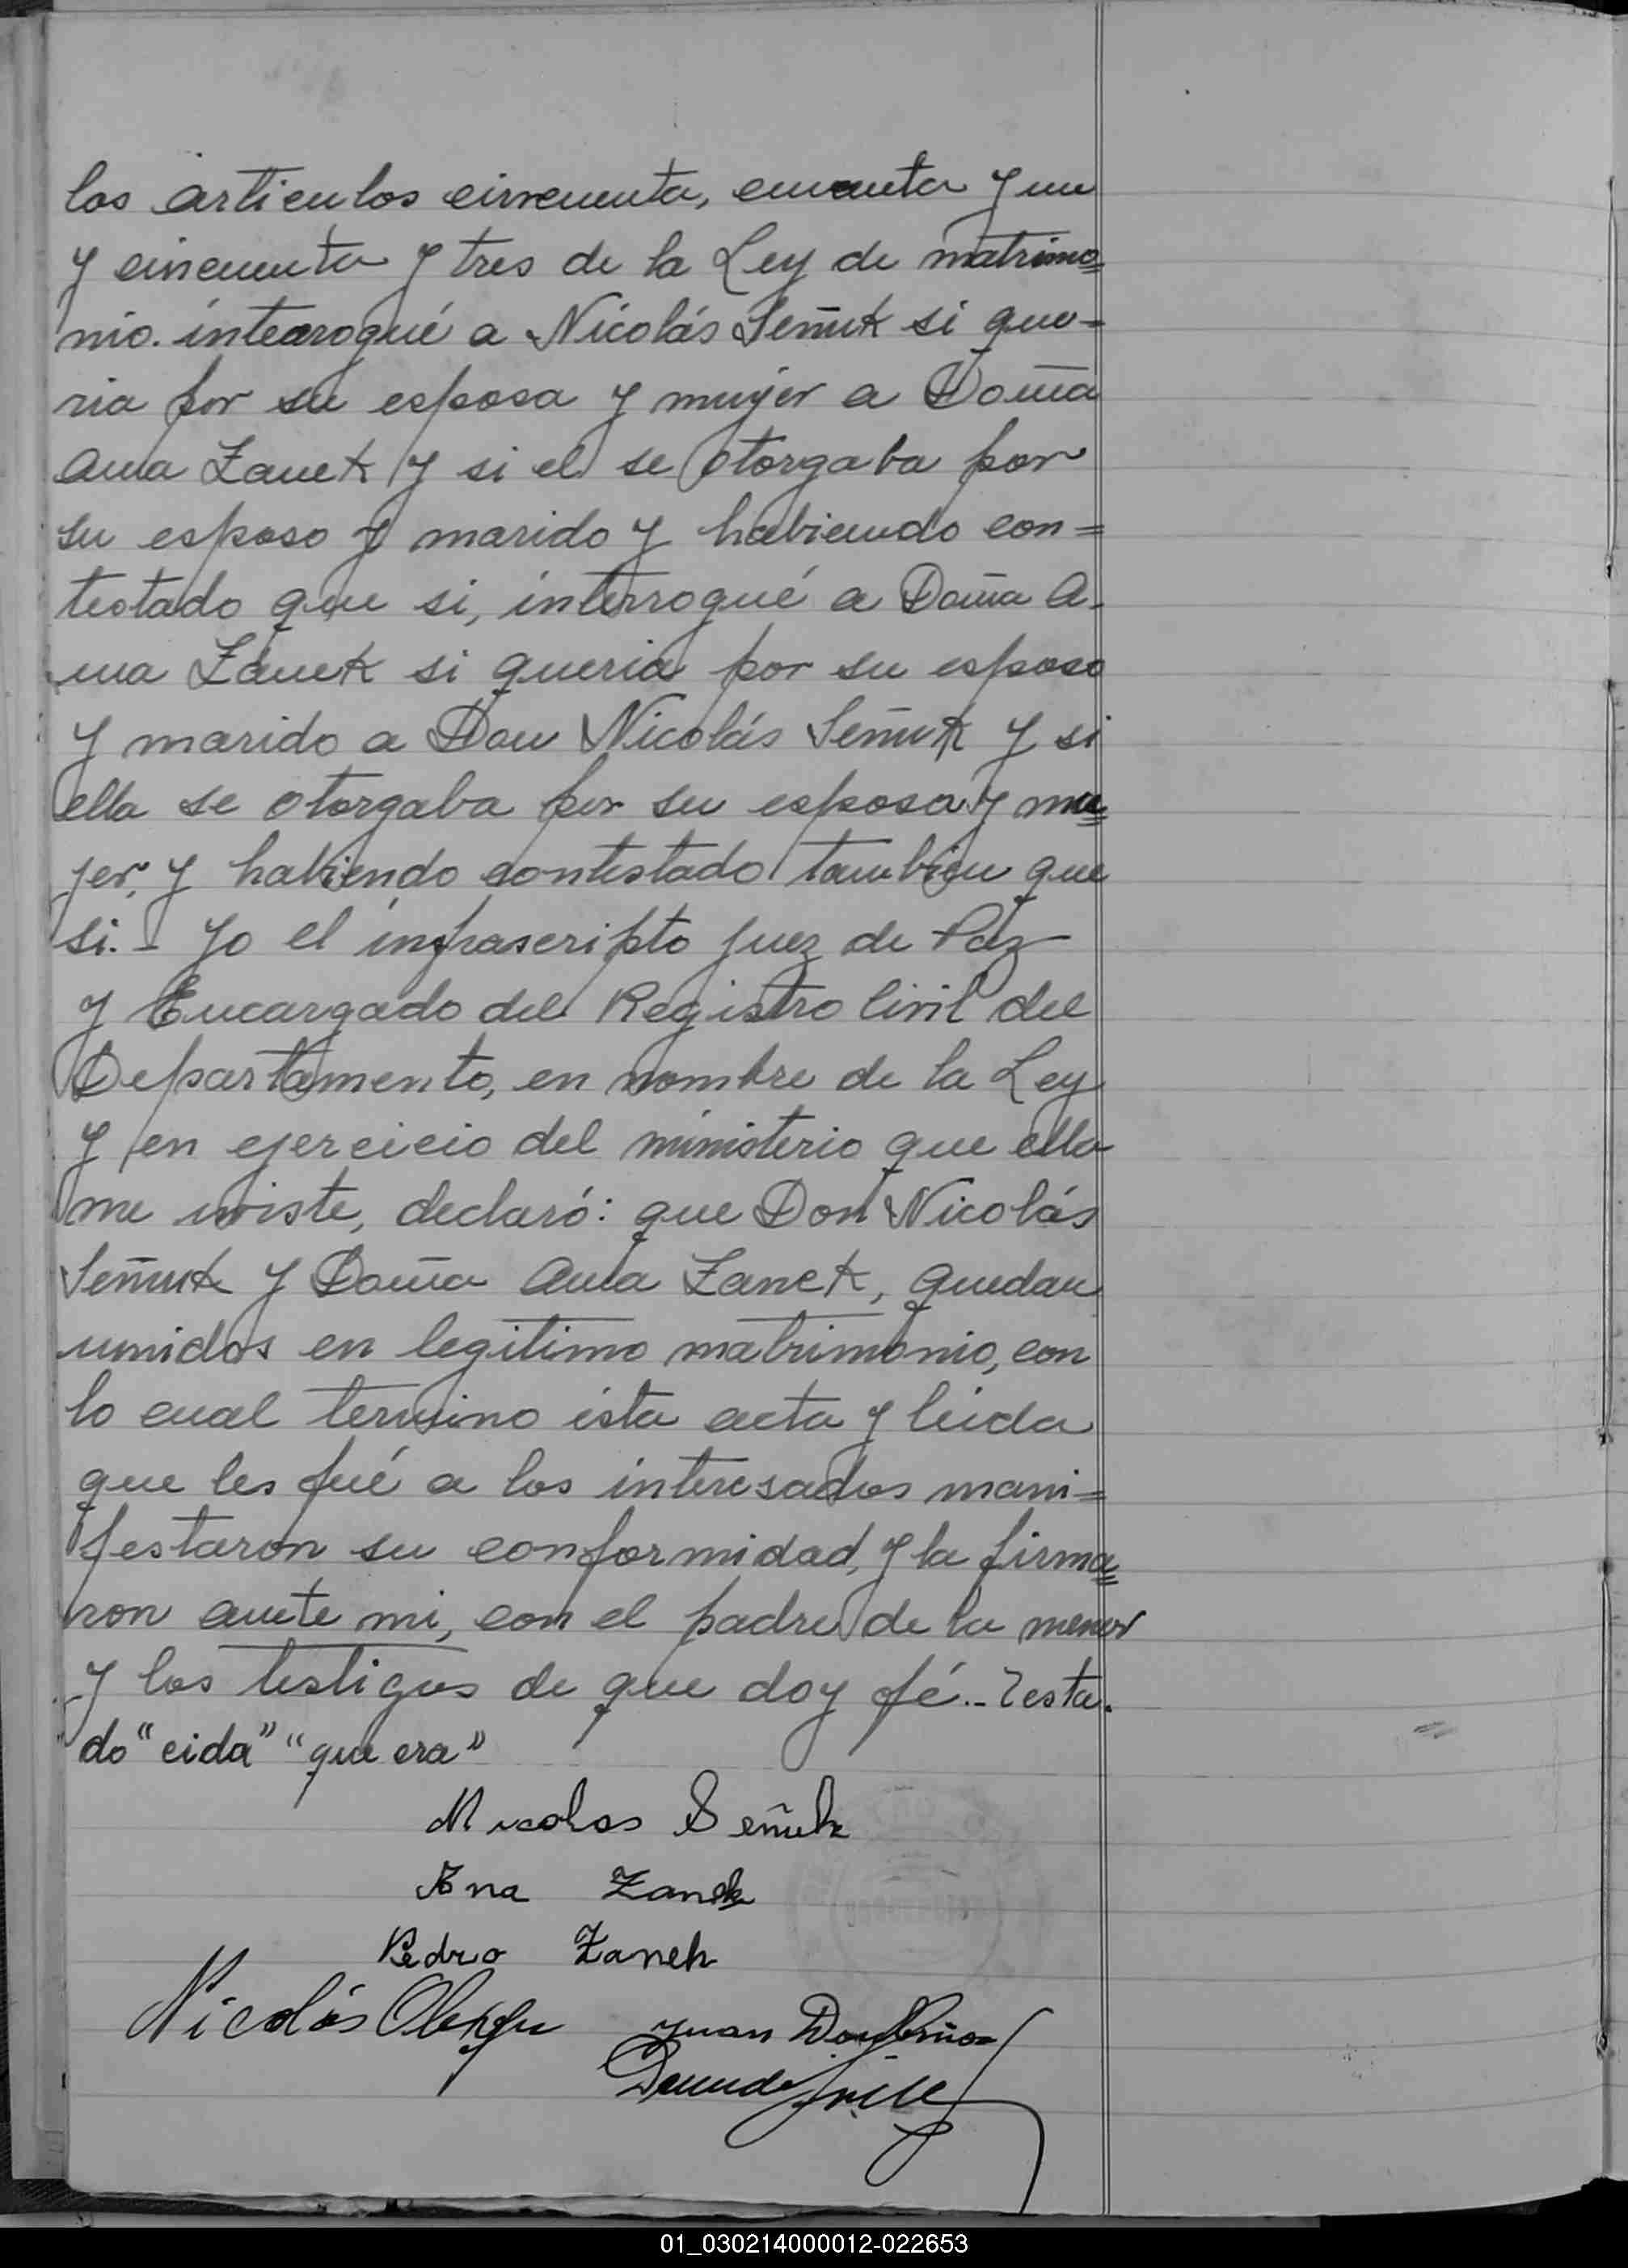 los articulos cincuenta, cincuenta y un
y cincuenta y tres de la Ley de matrimo=
nio. intearogué a Nicolás Señuk si que=
ria por su esposa y mujer a Doña
Ana Zanek y si el se otorgaba por
su esposo y marido y habiendo con=
testado que si, interrogué a Doña A-
na Zanek si queria por su esposo
y marido a Don Nicolás Señuk y si
ella se otorgaba por su esposa y mu=
jer, y habiendo contestado tambien que
si.- Yo el infrascripto Juez de Paz
y Encargado del Registro Civil del
Departamento, en nombre de la Ley
y en ejercicio del ministerio que ella
me iviste, declaró: que Don Nicolás
Señuk y Doña Ana Zanek, quedan
unidos en legitimo matrimonio, con
lo cual termino ésta acta y leida
que les fué a los interesados mani=
festaron su conformidad, y la firma=
ron ante mi, con el padre de la menor
y los testigos de que doy fé.- Testa.
do "cida" "que era"
Nicolas Señuk
Ana Zanek
Pedro Zanek
Nicolás
Juan
01_030214000012-022653